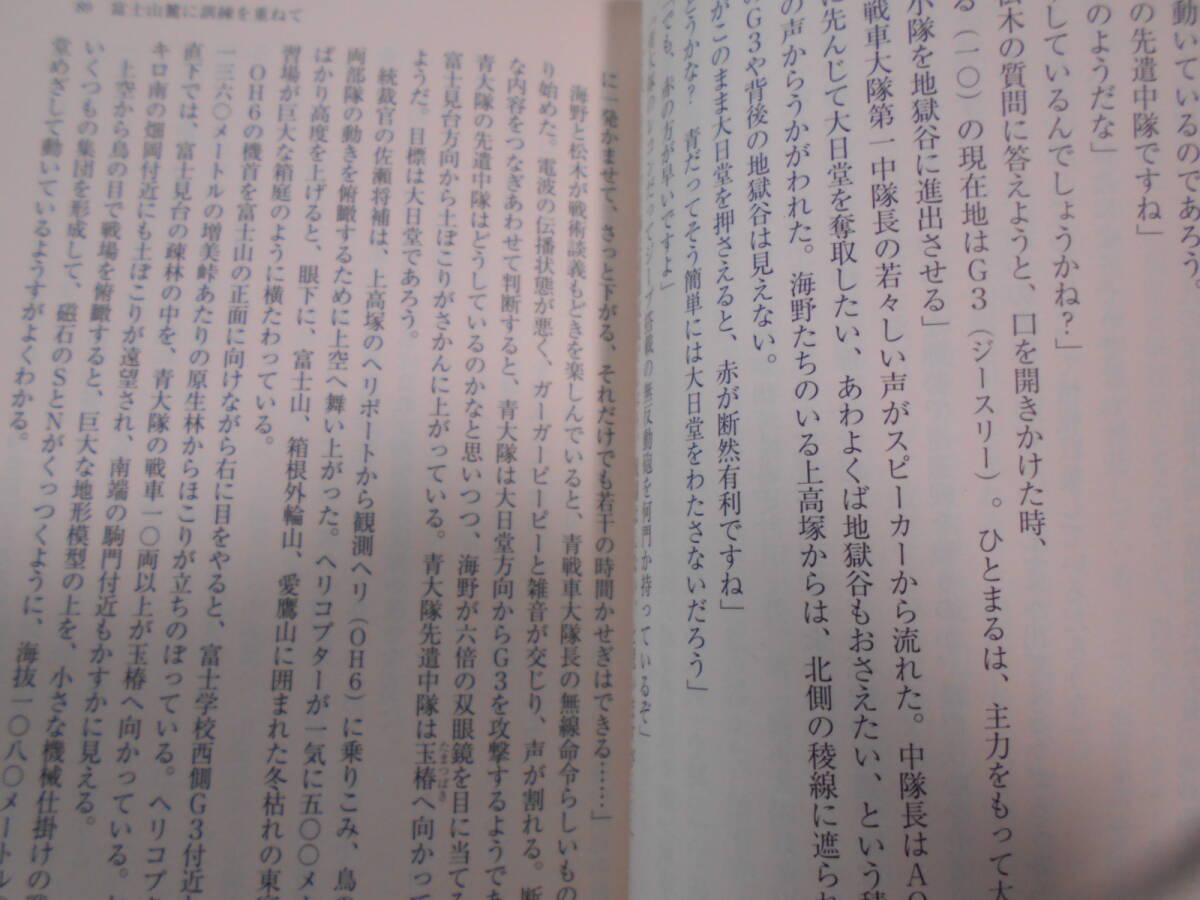 動いているのであろう。
の先遣中隊ですね」
のようだな」
しているんでしょうかね?」
木の質問に答えようと、口を開きかけた時、
る(一〇)の現在地はG3(ジースリー)。ひとまるは、主力をもって大
小隊を地獄谷に進出させる」
戦車大隊第一中隊長の若々しい声がスピーカーから流れた。中隊長はAO
に先んじて大日堂を奪取したい、あわよくば地獄谷もおさえたい、という積
の声からうかがわれた。海野たちのいる上高塚からは、北側の稜線に遮られ
のG3や背後の地獄谷は見えない。
がこのまま大日堂を押さえると、赤が断然有利ですね」
どうかな? 青だってそう簡単には大日堂をわたさないだろう」
でも、赤の方が早いですよ」
ジープ搭載の無反動砲を何門か持っているぞ」
89 富士山麓に訓練を重ねて
に一発かませて、さっと下がる、それだけでも若干の時間かせぎはできる……」
海野と松木が戦術談義もどきを楽しんでいると、青戦車大隊長の無線命令らしいもの
り始めた。電波の伝播状態が悪く、ガーガーピーピーと雑音が交じり、声が割れる。断
な内容をつなぎあわせて判断すると、青大隊は大日堂方向からG3を攻撃するようであ
青大隊の先遣中隊はどうしているのかなと思いつつ、海野が六倍の双眼鏡を目に当てる
富士見台方向から土ぼこりがさかんに上がっている。青大隊先遣中隊は玉椿へ向かって
ようだ。目標は大日堂であろう。
統裁官の佐瀬将補は、上高塚のヘリポートから観測ヘリ(OH6)に乗りこみ、鳥の
両部隊の動きを俯瞰するために上空へ舞い上がった。ヘリコプターが一気に五〇〇メ
ばかり高度を上げると、眼下に、富士山、箱根外輪山、愛鷹山に囲まれた冬枯れの東富
習場が巨大な箱庭のように横たわっている。
OH6の機首を富士山の正面に向けながら右に目をやると、富士学校西側G3付近
一三六〇メートルの増美峠あたりの原生林からほこりが立ちのぼっている。ヘリコプ
直下では、富士見台の疎林の中を、青大隊の戦車一〇両以上が玉椿へ向かっている。
キロ南の畑岡付近にも土ぼこりが遠望され、南端の駒門付近もかすかに見える。
上空から鳥の目で戦場を俯瞰すると、巨大な地形模型の上を、小さな機械仕掛けの
いくつもの集団を形成して、磁石のSとNがくっつくように、海抜一〇八〇メートル
堂めざして動いているようすがよくわかる。